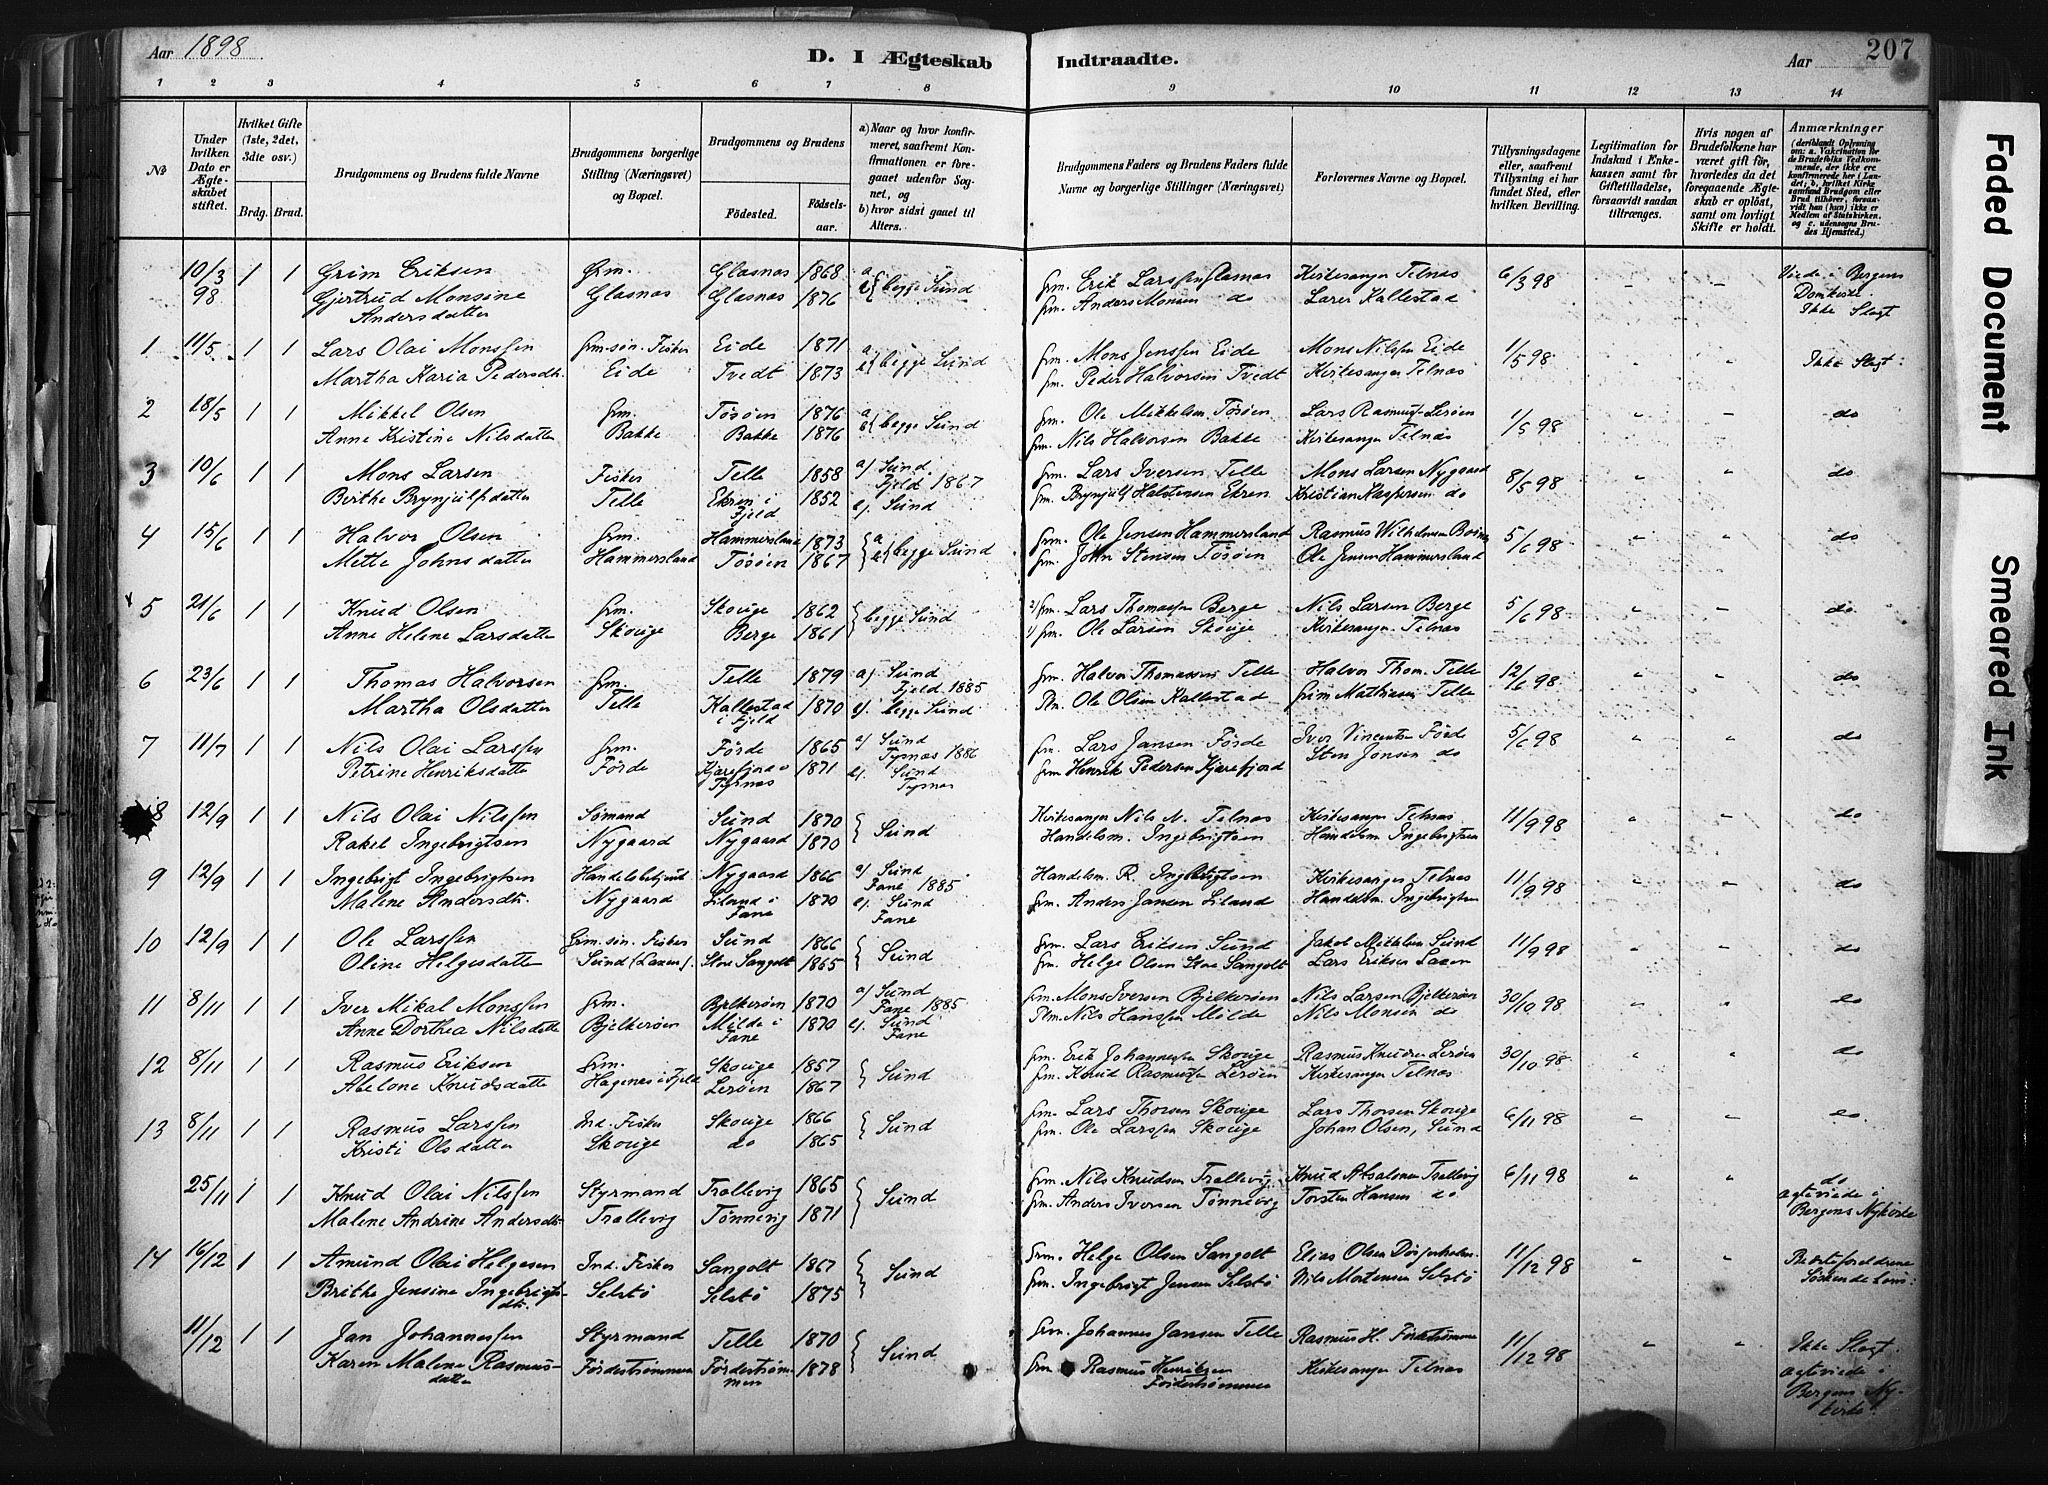 Aar 1898
D. I Ægteskab Indtraadte.
Aar
207
1 2 3 4 5 6 7 8 9 10 11 12 13 14
No
Under hvilken Dato er Ægteskabet stiftet.
Hvilket Gifte (1ste, 2det, 3die osv.)
Brdg. Brud.
Brudgommens og Brudens fulde Navne
Brudgommens borgerlige Stilling (Næringsvei) og Bopæl.
Brudgommens og Brudens
Födested. Födsels-aar.
a) Naar og hvor konfirmeret, saafremt Konfirmationen er foregaaet udenfor Sognet, og
b) hvor sidst gaaet til Alters.
Brudgommens Faders og Brudens Faders fulde Navne og borgerlige Stillinger (Næringsvei)
Forlovernes Navne og Bopæl.
Tillysningsdagene eller, saafremt Tillysning ei har fundet Sted, efter hvilken Bevilling.
Legitimation for Indskud i Enkekassen samt for Giftetilladelse, forsaavidt saadan tiltrænges.
Hvis nogen af Brudefolkene har været gift för, hvorledes da det foregaaende Ægteskab er oplöst, samt om lovligt Skifte er holdt.
Anmærkninger (deriblandt Oplysning om: a. Vakcination for de Brudefolks Vedkommende, der ikke ere konfirmerede her i Landet; b. hvilket Kirkesamfund Brudgom eller Brud tilhörer, forsaavidt han (hun) ikke er Medlem af Statskirken. og c. udensogns Brudes Hjemsted.)
10/3 98 1 1 Grim Eriksen Grm. Glasnæs 1868 a begge Sund Grm. Erik Larssen Glasnæs Kirkesanger Telnæs 6/3 98 " " Viede i Bergens
Gjertrud Monsine Glasnæs Glasnæs 1876 Grm. Anders Monsen do Lars Kallestad Domkirke
Andersdatter Ikke Slegt
1 11/5 1 1 Lars Olai Monssen Grm. søn. Fisker Eide 1871 a begge Sund Grm. Mons Jenssen Eide Mons Nilssen Eide 1/5 98 " " Ikke Slegt.
Martha Karia Pedersdtr. Eide Tvedt 1873 Grm. Peder Halvorsen Tvedt Kirkesanger Telnæs
2 18/5 1 1 Mikkel Olsen Grm. Tøsøen 1876 a begge Sund Grm. Ole Mikkelsen Tøsøen Lars Rasmus. Lerøen 1/5 98 " " do
Anne Kristine Nilsdatter Bakke Bakke 1876 Grm. Nils Halvorsen Bakke Kirkesanger Telnæs
3 10/6 1 1 Mons Larsen Fisker Telle 1858 a) Sund Grm. Lars Iversen Telle Mons Larsen Nygaard 8/5 98 " " do
Fjeld 1867
Berthe Brynjulfsdatter Telle Ekren i Fjeld 1852 Sund Grm. Brynjulf Halstensen Ekren Kristian Kaspersen do
4 15/6 1 1 Halvor Olsen Grm. Hammersland 1873 a begge Sund Grm. Ole Jensen Hammersland Rasmus Wilhelmsen 5/6 98 " " do
Mette Johnsdatter Hammersland Tøsøen 1867 Grm. John Stensen Tøsøen Ole Jensen Hammersland
5 21/6 1 1 Knud Olsen Grm. Skouge 1862 begge Sund 2) Grm. Lars Thomassen Berge Nils Larsen Berge 5/6 98 " " do
Anne Helene Larsdatter Skouge Berge 1861 1) Grm. Ole Larsen Skouge Kirkesanger Telnæs
6 23/6 1 1 Thomas Halvorsen Grm. Telle 1879 a) Sund Grm. Halvor Thomassen Telle Halvor Thom. Telle 12/6 98 " " do
Fjeld 1885
Martha Olsdatter Telle Kallestad i Fjeld 1870 begge Sund Plm. Ole Olsen Kallestad Grim Mathiesen Telle
7 11/7 1 1 Nils Olai Larssen Grm. Førde 1865 a) Sund Grm. Lars Jansen Førde Iver Vincentsen Førde 5/6 98 " " do
Tysnæs 1886
Petrine Henriksdatter Førde Kjærefjord i Tysnæs 1871 Sund Tysnæs Grm. Henrik Pedersen Kjærefjord Sten Jonsen do
8 12/9 1 1 Nils Olai Nilssen Sømand Sund 1870 Sund Kirkesanger Nils N. Telnæs Kirkesanger Telnæs 11/9 98 " " do
Rakel Ingebrigtsen Nygaard Nygaard 1870 Handelsm. Ingebrigtsen Handelsm Ingebrigtsen
9 12/9 1 1 Ingebrigt Ingebrigtsen Handelsbetjent Nygaard 1866 a) Sund Handelsm. R. Ingebrigtsen Kirkesanger Telnæs 11/9 98 " " do
Fane 1885
Malene Andersdtr. Nygaard Liland i Fane 1870 Sund Fane Grm. Anders Jansen Liland Handelsm. Ingebrigtsen
10 12/9 1 1 Ole Larssen Grm. søn. Fisker Sund 1866 Sund Grm. Lars Eriksen Sund Jakob Mikkelsen Sund 11/9 98 " " do
Oline Helgesdatter Sund (Laxen). Store Sangolt 1865 Grm. Helge Olsen Store Sangolt Lars Eriksen Laxen
11 8/11 1 1 Iver Mikal Monssen Grm. Bjelkerøen 1870 a) Sund Grm. Mons Iversen Bjelkerøen Nils Larsen Bjelkerøen 30/10 98 " " do
Fane 1885
Anne Dorthea Nilsdatter Bjelkerøen Milde i Fane 1870 Sund Fane Plm. Nils Hanssen Milde Nils Monsen do
12 8/11 1 1 Rasmus Eriksen Grm. Skouge 1857 Sund Grm. Erik Johannessen Skouge Rasmus Knudsen Lerøen 30/10 98 " " do
Abelone Knudsdatter Hagenæs i Fjeld Lerøen 1867 Grm. Knud Rasmussen Lerøen Kirkesanger Telnæs
13 8/11 1 1 Rasmus Larssen Ind. Fisker Skouge 1866 Sund Grm. Lars Thorsen Skouge Lars Thorsen Skouge 6/11 98 " " do
Kristi Olsdatter Skouge do 1865 Grm. Ole Larssen Skouge Johan Olsen, Sund
25/11 1 1 Knud Olai Nilssen Styrmand Trallevig 1865 Sund Grm. Nils Knudsen Trællevig Knud Absalonsen Trællevig 6/11 98 " " do
Malene Andrine Andersdtr. Trællevig Tønnevig 1871 Grm. Anders Iversen Tønnevig Torsten Hansen do agteviede i Bergens Nykirke
14 16/12 1 1 Amund Olai Helgesen Ind. Fisker Sangolt 1867 Sund Grm. Helge Olsen Sangolt Elias Olsen 11/12 98 " " Bedsteforældrene
Brithe Jensine Ingebrigts-dtr. Selstø Selstø 1875 Grm. Ingebrigt Jensen Selstø Nils Mortensen Selstø
11/12 1 1 Jan Johannessen Styrmand Telle 1870 Sund Grm. Johannes Jansen Telle Rasmus H. Førdestrømmen 11/12 98 " " Ikke Slegt.
Karen Malene Rasmus-datter Førdestrømmen Førdestrømmen 1878 Grm Rasmus Henriksen Førdestrømmen Kirkesanger Telnæs agteviede i Bergens Nykirke.
Faded Document
Smeared Ink